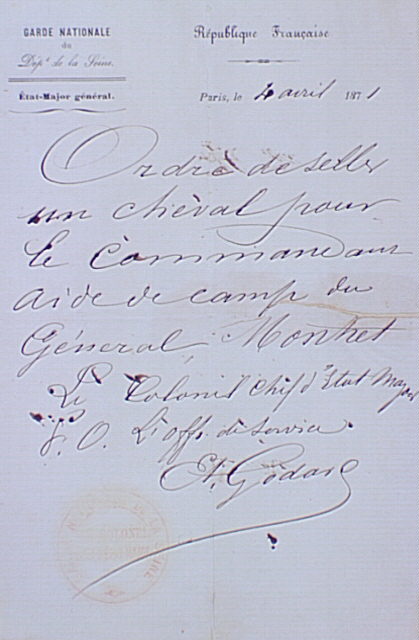 GARDE NATIONALE
du
Dépt. de la Seine.
État-Major général.
République Française
Paris, le 4 avril 1871
Ordre de seller
un cheval pour
le Commandant
aide de camp du
Général
Le Colonel Chef d'Etat Major
P. O. L'off. de Service
Et. Godard